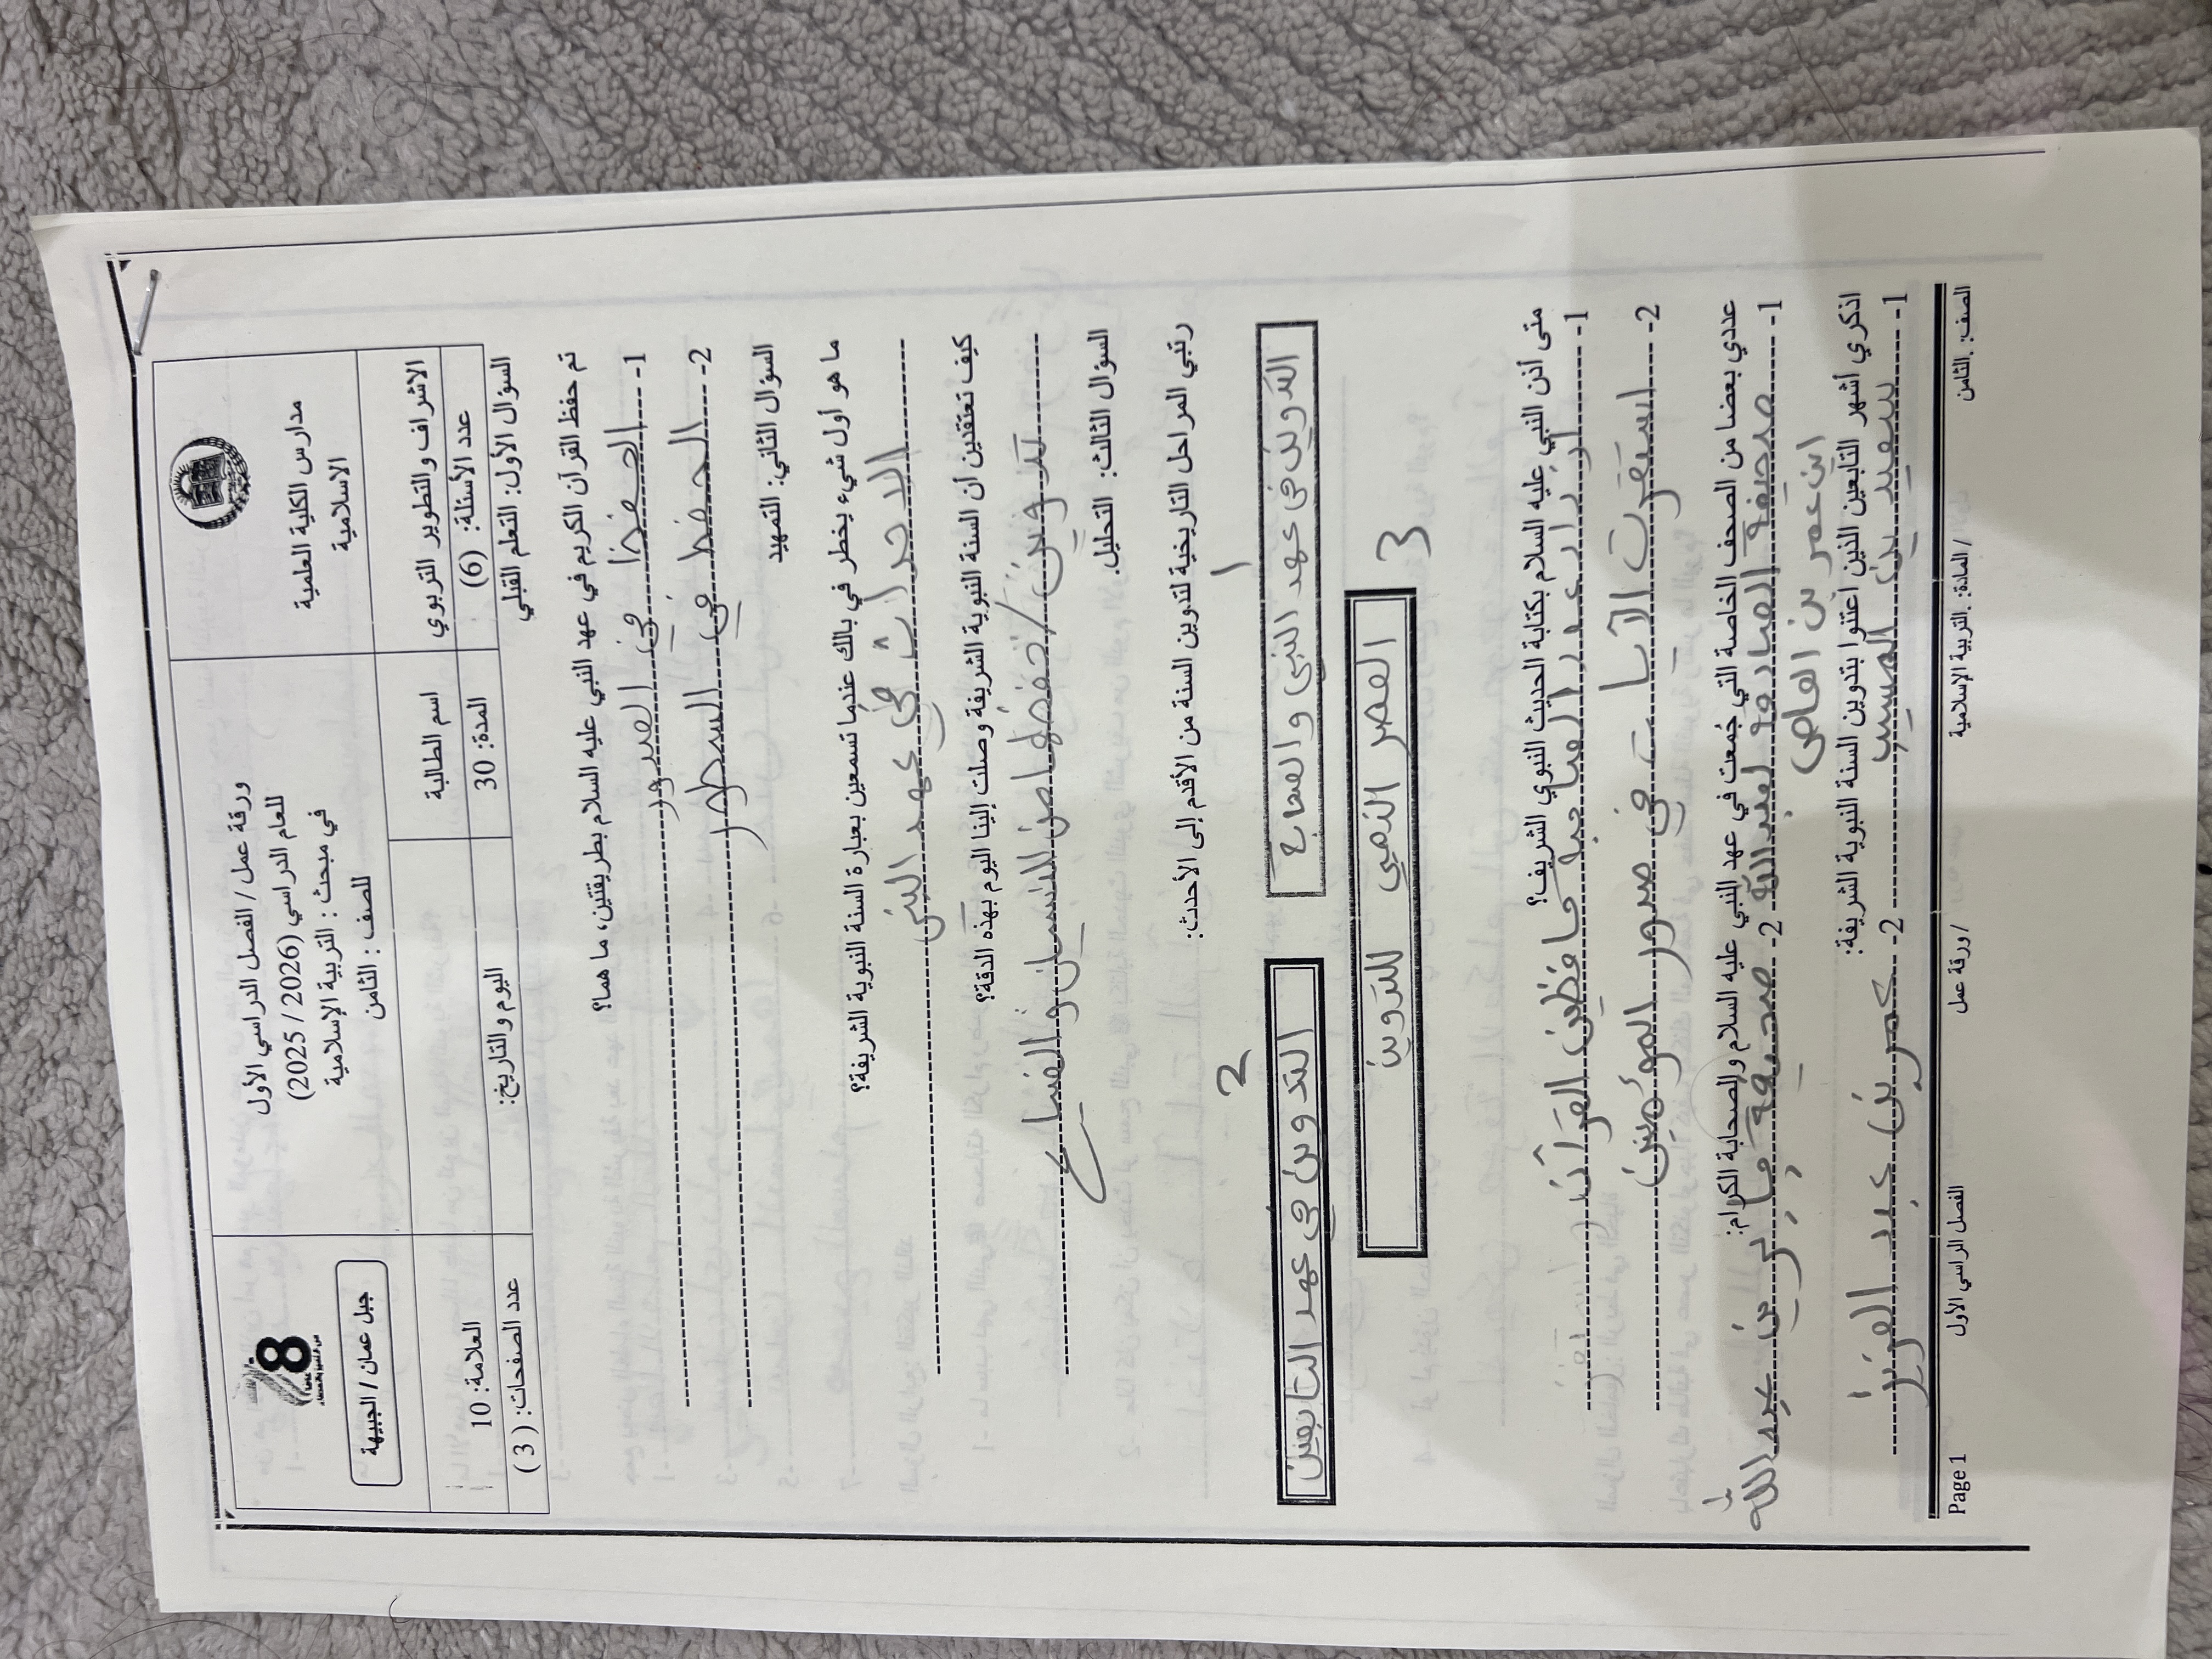 مدارس الكلية العلمية الاسلامية
ورقة عمل / الفصل الدراسي الأول
للعام الدراسي (2025 / 2026)
في مبحث : التربية الإسلامية
للصف : الثامن
جبل عمان / الجبيهة
الاشراف والتطوير التربوي
اسم الطالبة
العلامة: 10
عدد الأسئلة: (6)
المدة: 30
اليوم والتاريخ:
عدد الصفحات: ( 3 )
السؤال الأول: التعلم القبلي
تم حفظ القرآن الكريم في عهد النبي عليه السلام بطريقتين، ما هما؟
1- الحفظ في الصدور
2- الحفظ في السطور
السؤال الثاني: التمهيد
ما هو أول شيء يخطر في بالك عندما تسمعين بعبارة السنة النبوية الشريفة؟
الاحداث في عهد النبي
كيف تعتقدين أن السنة النبوية الشريفة وصلت إلينا اليوم بهذه الدقة؟
تدوين / حفظها من النسيان و الضياع
السؤال الثالث: التحليل.
رتبي المراحل التاريخية لتدوين السنة من الأقدم إلى الأحدث:
1 2
التدوين في عهد النبي والصحابة
التدوين في عهد التابعين
العصر الذهبي للتدوين 3
متى أذن النبي عليه السلام بكتابة الحديث النبوي الشريف؟
1- عدد الصحابة حافظين القرآن
2- استقرت الآيات في صدور المؤمنين
عددي بعضا من الصحف الخاصة التي جُمعت في عهد النبي عليه السلام والصحابة الكرام:
1- صحيفة الصادقة لعبدالله 2- صحيفة جابر بن عبد الله
ابن عمر بن العاص
اذكري أشهر التابعين الذين اعتنوا بتدوين السنة النبوية الشريفة:
1- سعيد بن المسيب 2- عمر بن عبد العزيز
الصف: .الثامن / المادة: .التربية الإسلامية / ورقة عمل الفصل الراسي الأول Page 1